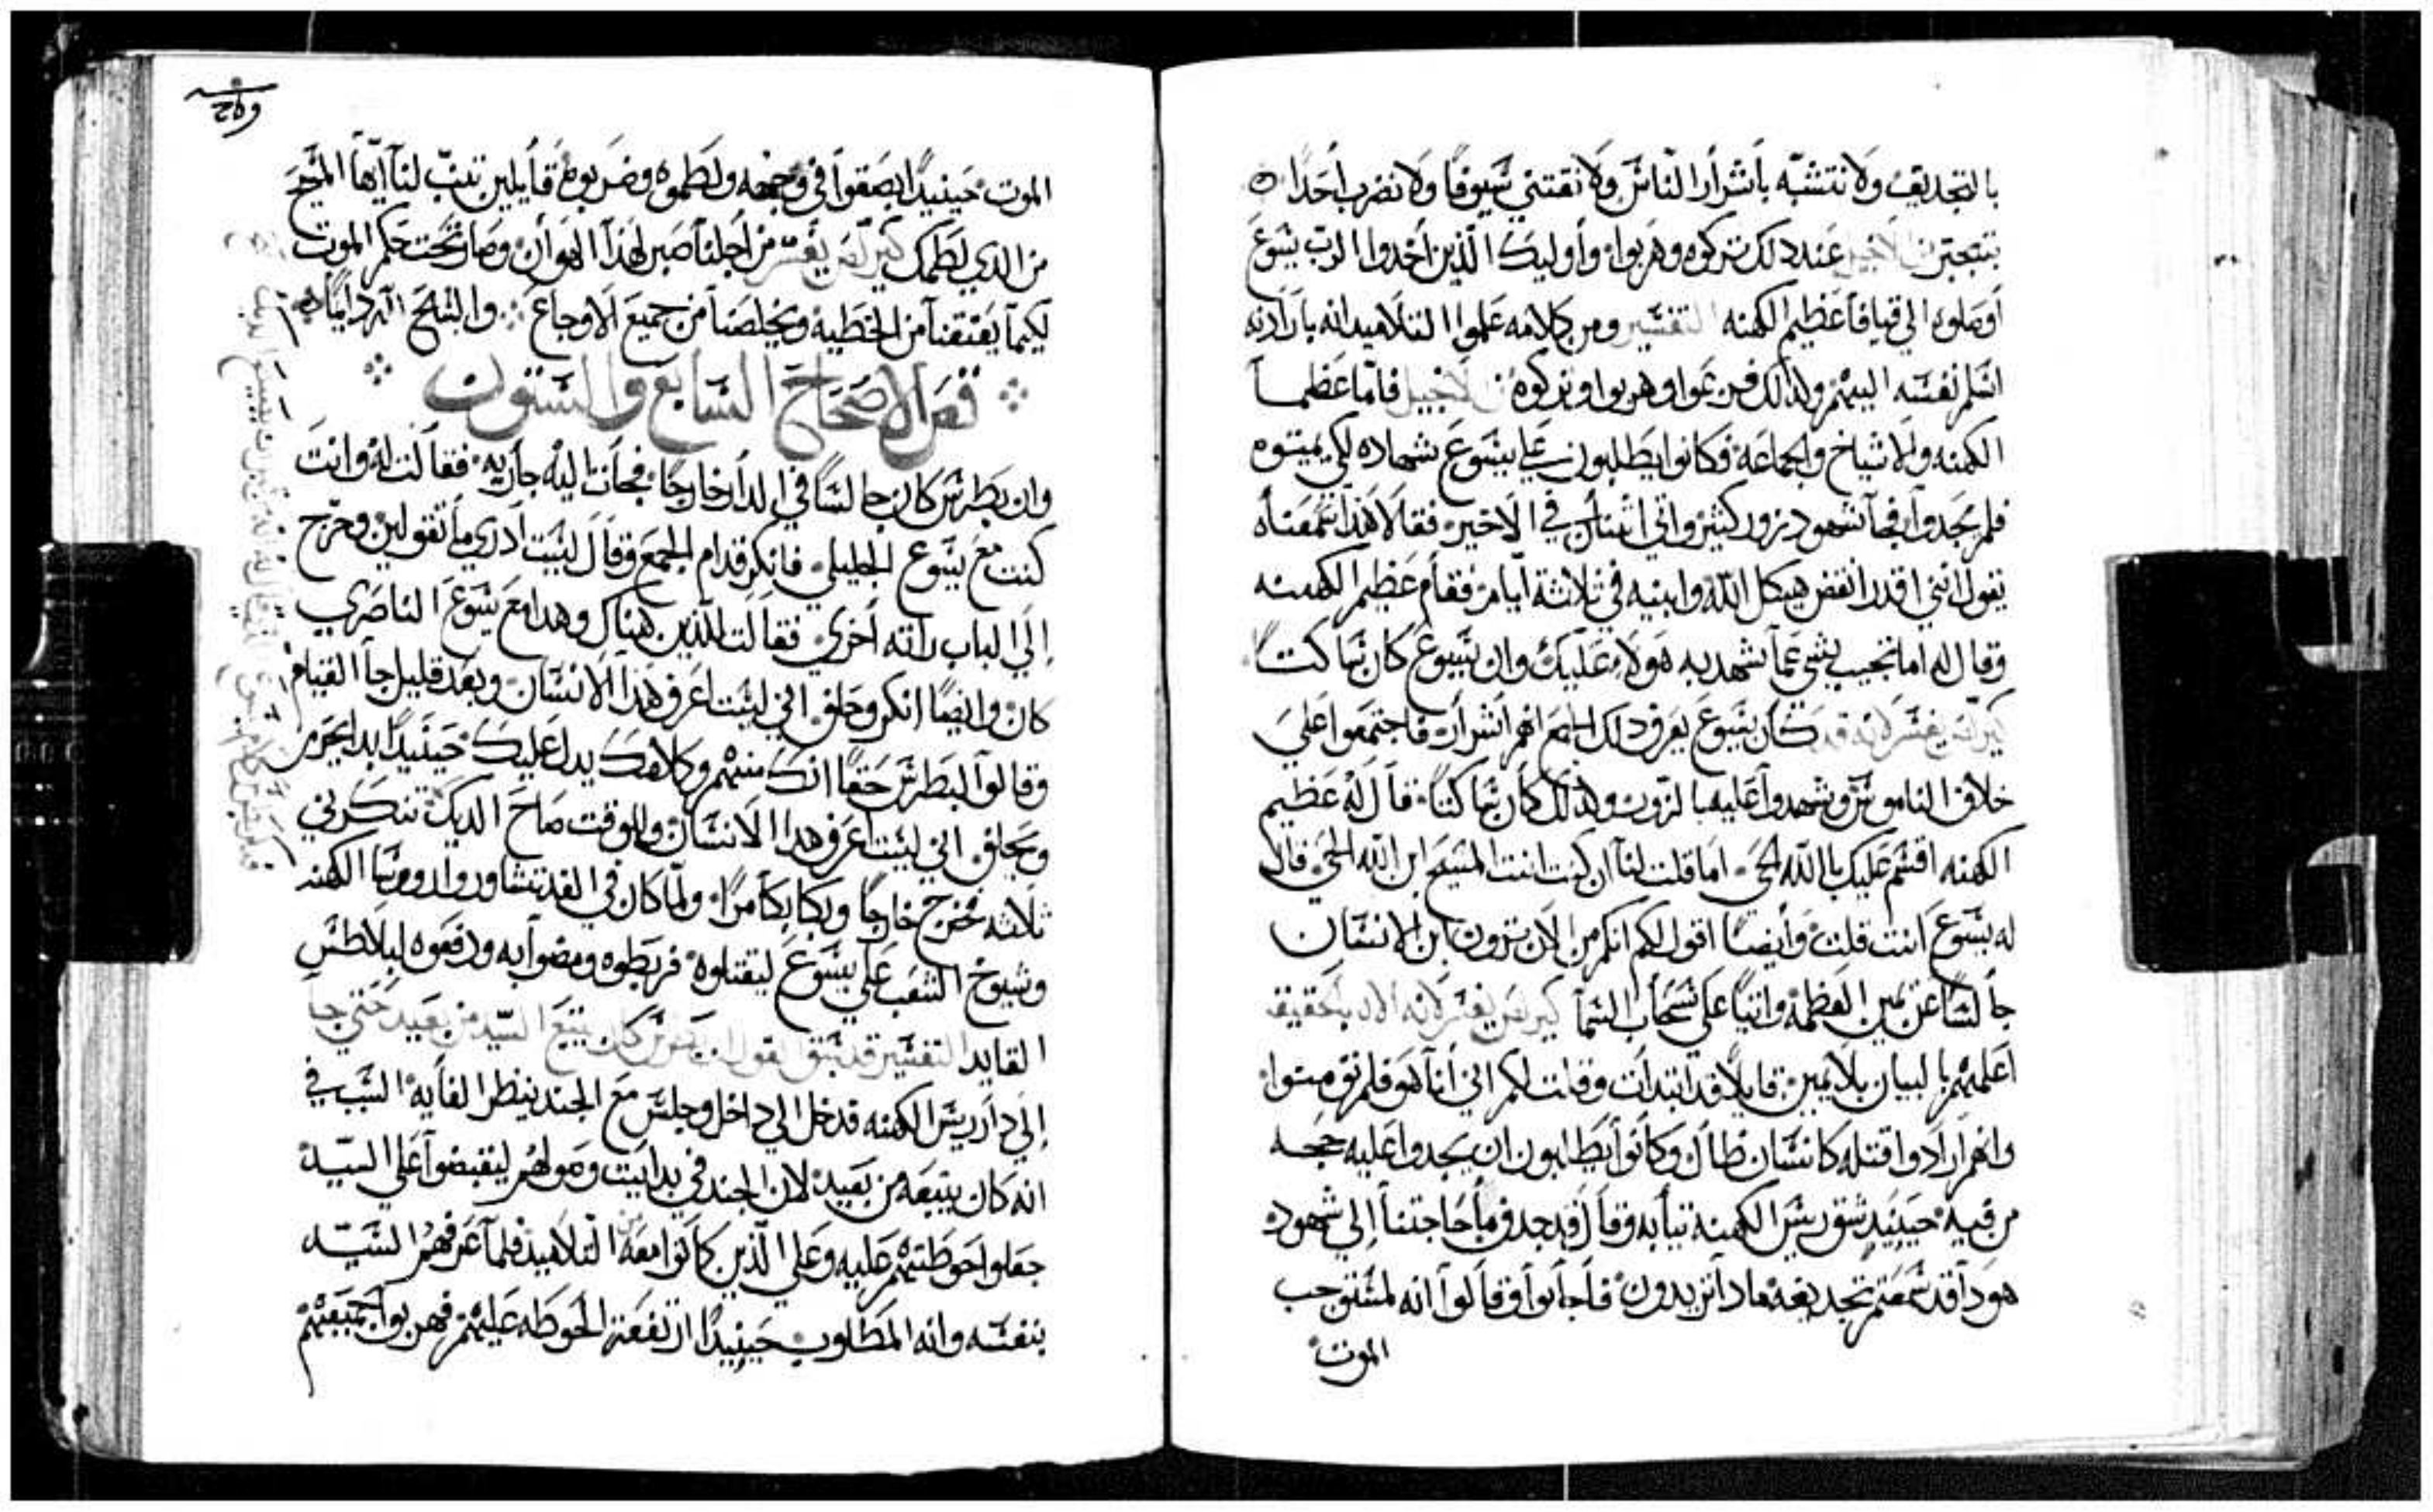 بالتجديف ولا نتشبه بأشرار الناس ولا نقتني سيوفا ولا نضرب أحدا
عند ذلك تركوه وهربوا وأوليك الذين أخدوا الرب يسوع
أوصلوه الي قيافا عظيم الكهنه التفسير ومن كلامه علموا التلاميد انه بارادته
اسلم نفسه اليهم ولذلك فزعوا وهربوا وتركوه الانجيل فاما عظما
الكهنه والاشياخ والجماعة فكانوا يطلبون علي يسوع شهاده لكي يميتوه
فلم يجدوا فجا شهود زور كثير واتي اثنان في الاخير فقالا هذا سمعناه
يقول انني اقدر انقض هيكل الله وابنيه في ثلاثة أيام فقام عظيم الكهنه
وقال له اما تجيب بشي عما يشهد به هولاء عليك وان يسوع كان ساكتا
كيرلص يفسر لانه قد كان يسوع يعرف دلك الجمع انهم اشرار فاجتمعوا علي
خلاف الناموس وشهدوا عليه بالزور ولذلك كان ساكتا قال له عظيم
الكهنه اقسم عليك بالله الحي اما قلت لنا ان كنت انت المسيح ابن الله الحي قال
له يسوع انت قلت وأيضا اقول لكم انكم من الان ترون ابن الانسان
جالسا عن يمين العظمة واتيا علي سحاب السما كيرلص يفسر لانه الان بالحقيقه
اعلمهم بالبيان بلا يمين قايلا قد ابتدات وقلت لكم اني أنا هو فلم تومنوا
وانهم ارادوا قتله كانسان ظال وكانوا يطلبون ان يجدوا عليه حجه
من فيه حينيد شق ريس الكهنة تيابه وقال قد جدف ما حاجتنا إلي شهود
هودا قد سمعتم تجديفه مادا تريدون فأجابوا وقالوا انه لمستوجب
الموت
الموت حينيدا بصقوا في وجهه ولطموه وضربوه قايلين تنب لنا أيها المسيح
من الدي لطمك كيرلص يفسر من اجلنا صبر لهذا الهوان وصار تحت حكم الموت
لكيما يعتقنا من الخطية ويخلصنا من جميع الاوجاع والسبح
الاصحاح السابع والستون
وان بطرس كان جالسا في الدار خارجا فجات اليه جاريه فقالت له وانت
كنت مع يسوع الجليلي فانكر قدام الجمع وقال ليست أدري ما تقولين وخرج
إلي الباب راته أخري فقالت للذين هناك وهدا مع يسوع الناصري
كان وايضا انكر وحلف اني ليست اعرف هذا الانسان وبعد قليل جا القيام
وقالوا لبطرس حقا انك منهم وكلامك يدل عليك حينيدا بدا يحرم
ويحلف اني ليست اعرف هدا الانسان وللوقت صاح الديك تنكرني
ثلاثه فخرج خارجا وبكا بكا مرا ولما كان في الغد تشاوروا روسا الكهنه
وشيوخ الشعب علي يسوع ليقتلوه فربطوه ومضوا به ودفعوه لبيلاطس
القايد التفسير قد سبق القول ان بطرس كان يتبع السيد من بعيد حتي جا
إلي دار ريس الكهنه قد دخل الي داخل وجلس مع الجند ينظر الغايه السبب في
انه كان يتبعه من بعيد لان الجند في بدايت وصولهم ليقبضوا علي السيد
جعلوا حوطتهم عليه وعلي الذين كانوا معه من التلاميد فلما عرفهم السيد
بنفسه وانه المطلوب حينيدا ارتفعة الحوطه عليهم فهربوا جميعهم